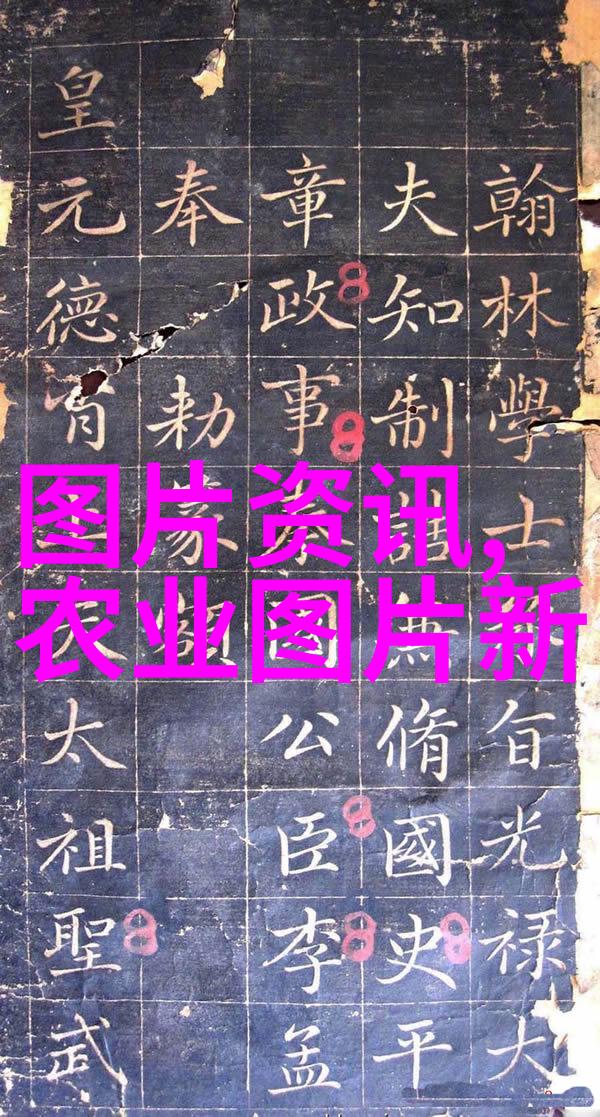 图片资讯,
农业图片新
翰林學士旨光禄大
夫知制誥脩國史平
章政事國公臣李孟
奉勑篆額
皇元德太祖聖武